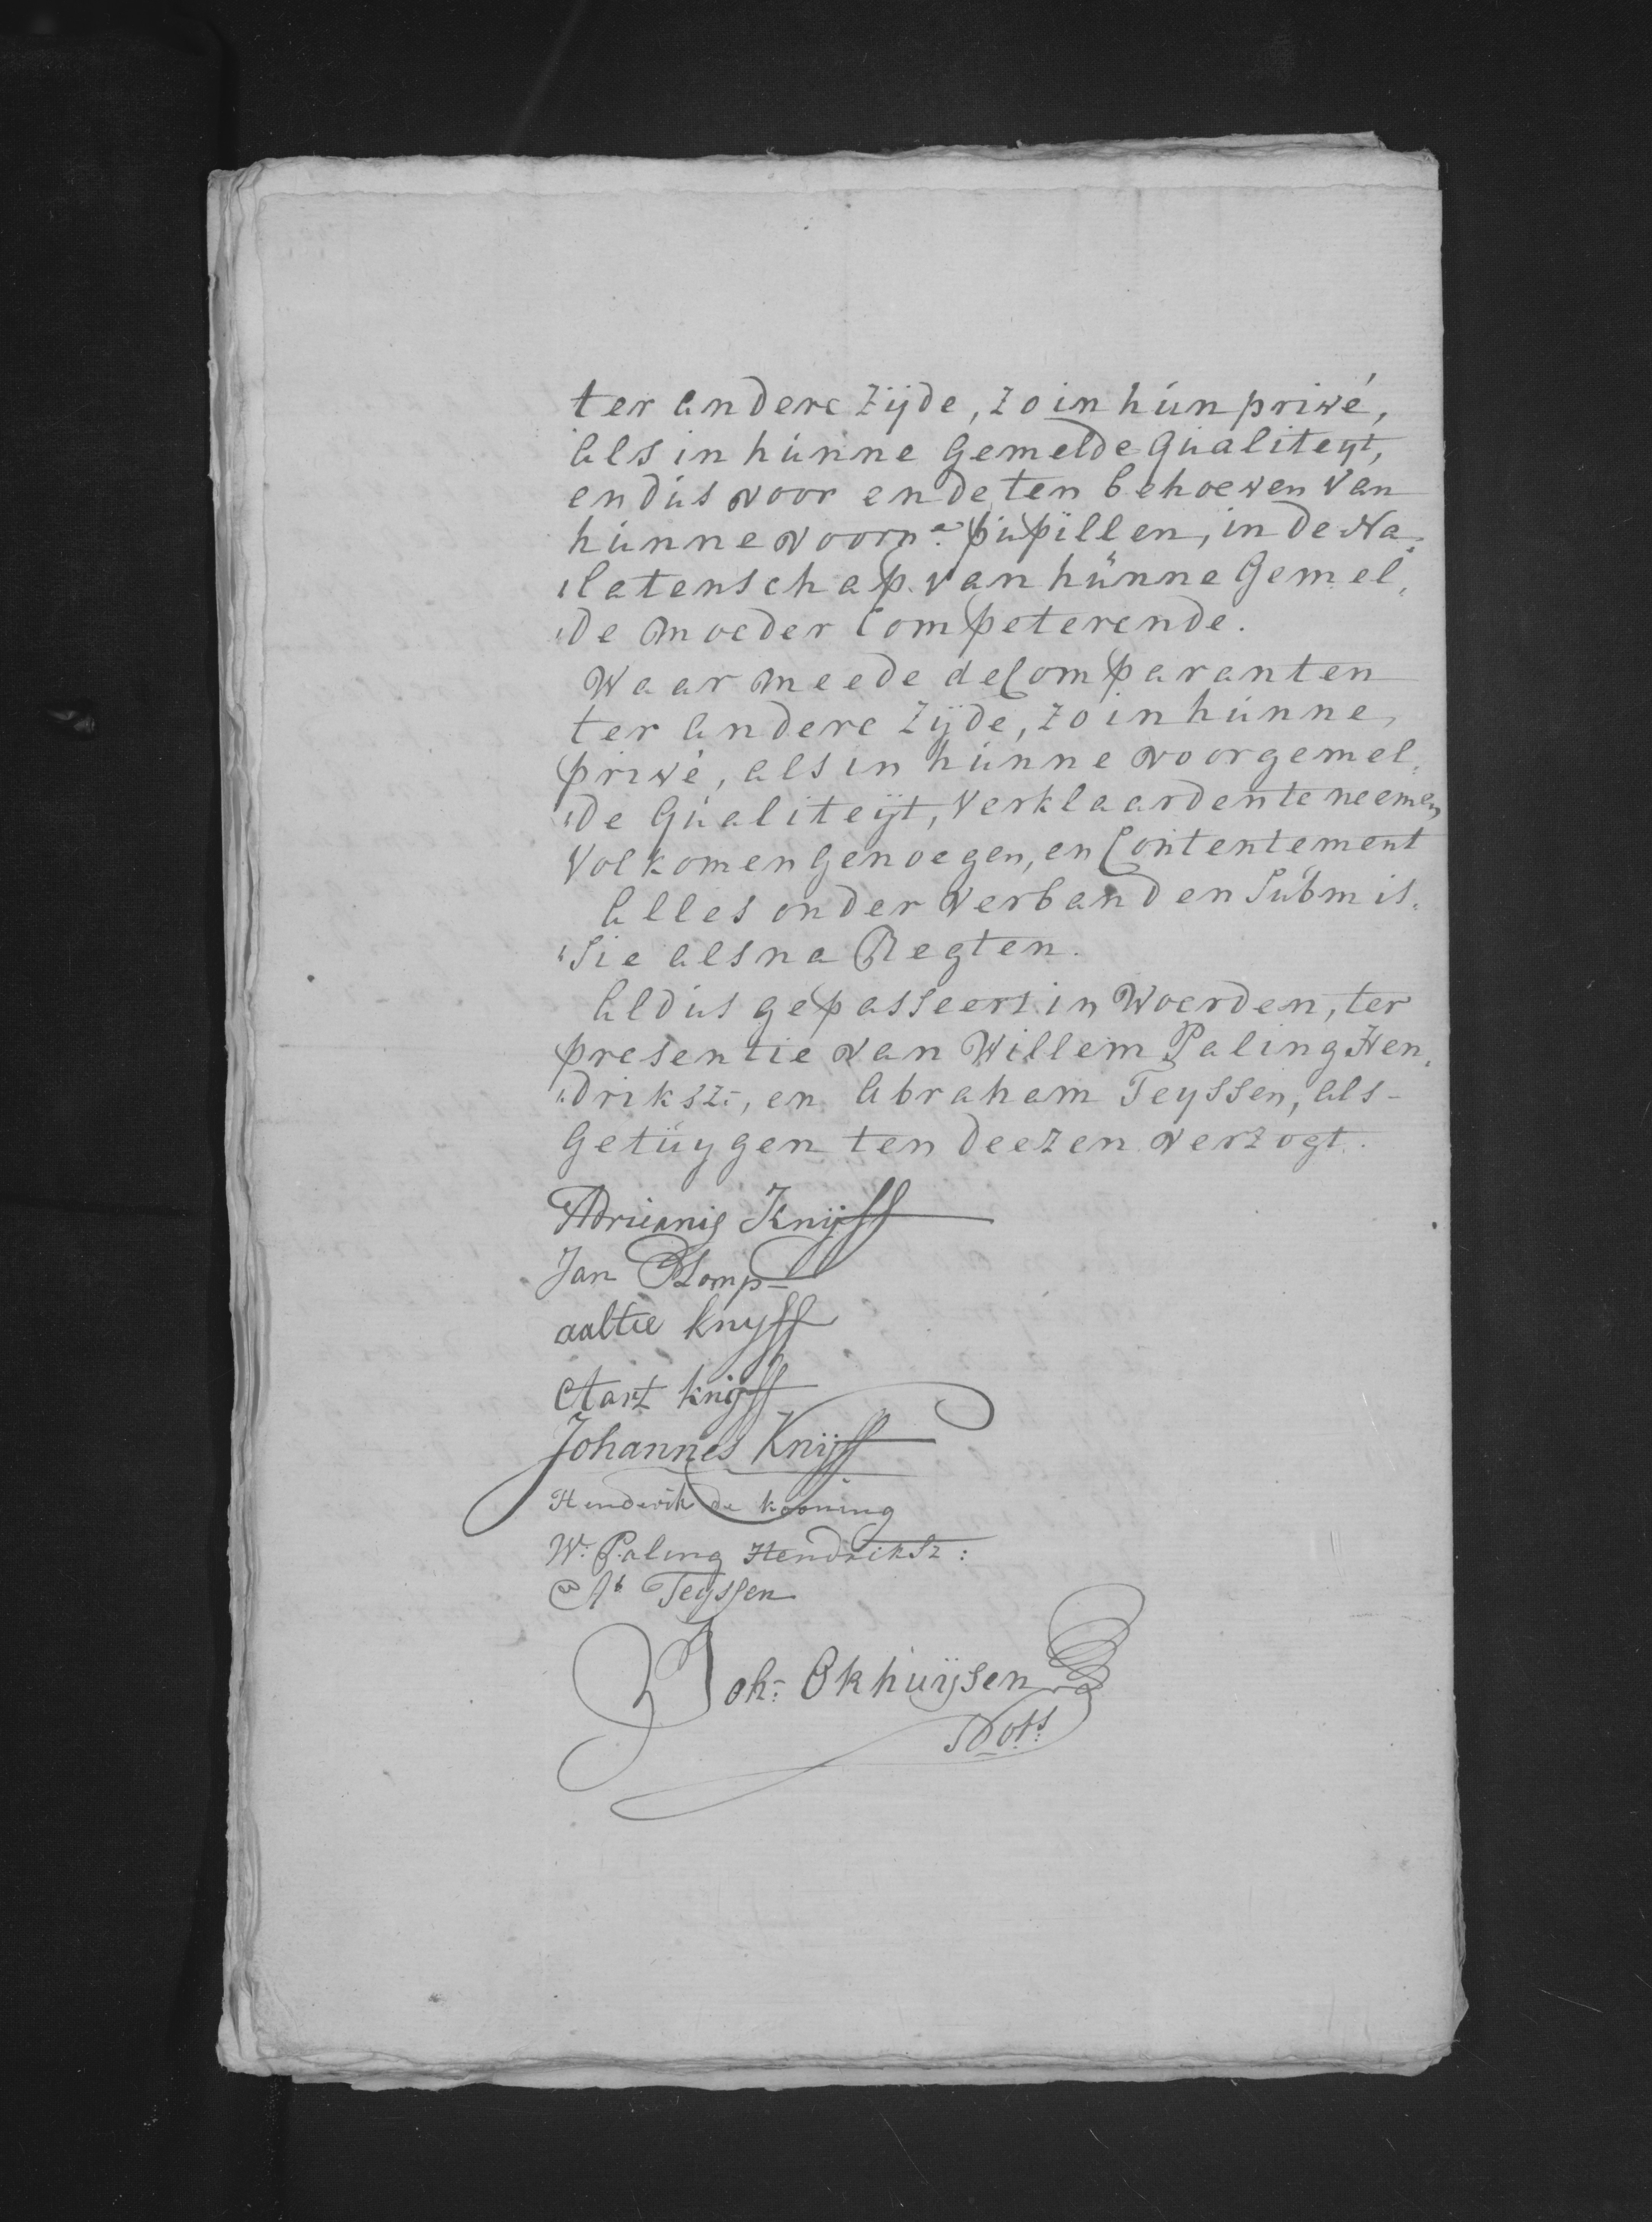 ter andere Zijde, zo in hun privé,
als in hunne Gemelde Qualiteyt,
en dus voor ende ten behoeven van
hunne voorn:e pupillen, in de Na„
„latenschap van hunne Gemel„
„de Moeder Competerende.
Waar meede de Comparanten
ter andere Zijde, zo in hunne
privé, als in hunne voorgemel„
„de Qualiteijt, verklaarden te neemen
volkomen Genoegen, en Contentement
Alles onder verband en Submis„
„sie als na Regten.
Aldus gepasseert in Woerden, ter
presentie van Willem Paling Hen„
„driksz:, en Abraham Teyssen, als
Getuygen ten deezen verzogt.
Adrianis Knijff
Jan Blomp
aaltie knyff
Aart knijff
Johannes Knijff
Henderik de kooning
W: Paling Hendriksz:
Ab Teyssen
Joh: Okhuijsen
Nots: